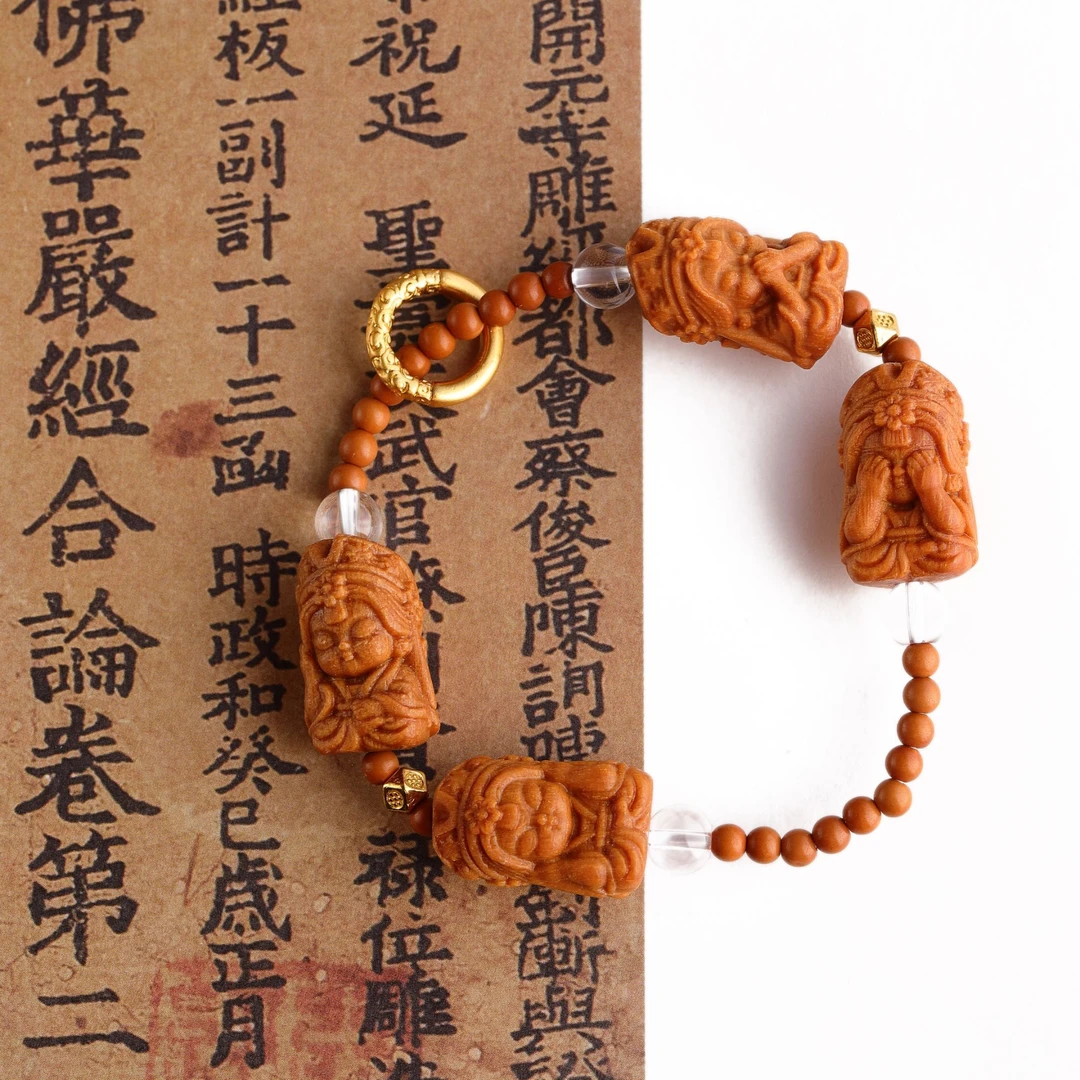 開元寺雕經都會蔡俊臣陳詢陳劉漸與證
祝延 聖武官僚祿位雕造
經板一副計一十三函 時政和癸巳歲正月
佛華嚴經合論卷第二